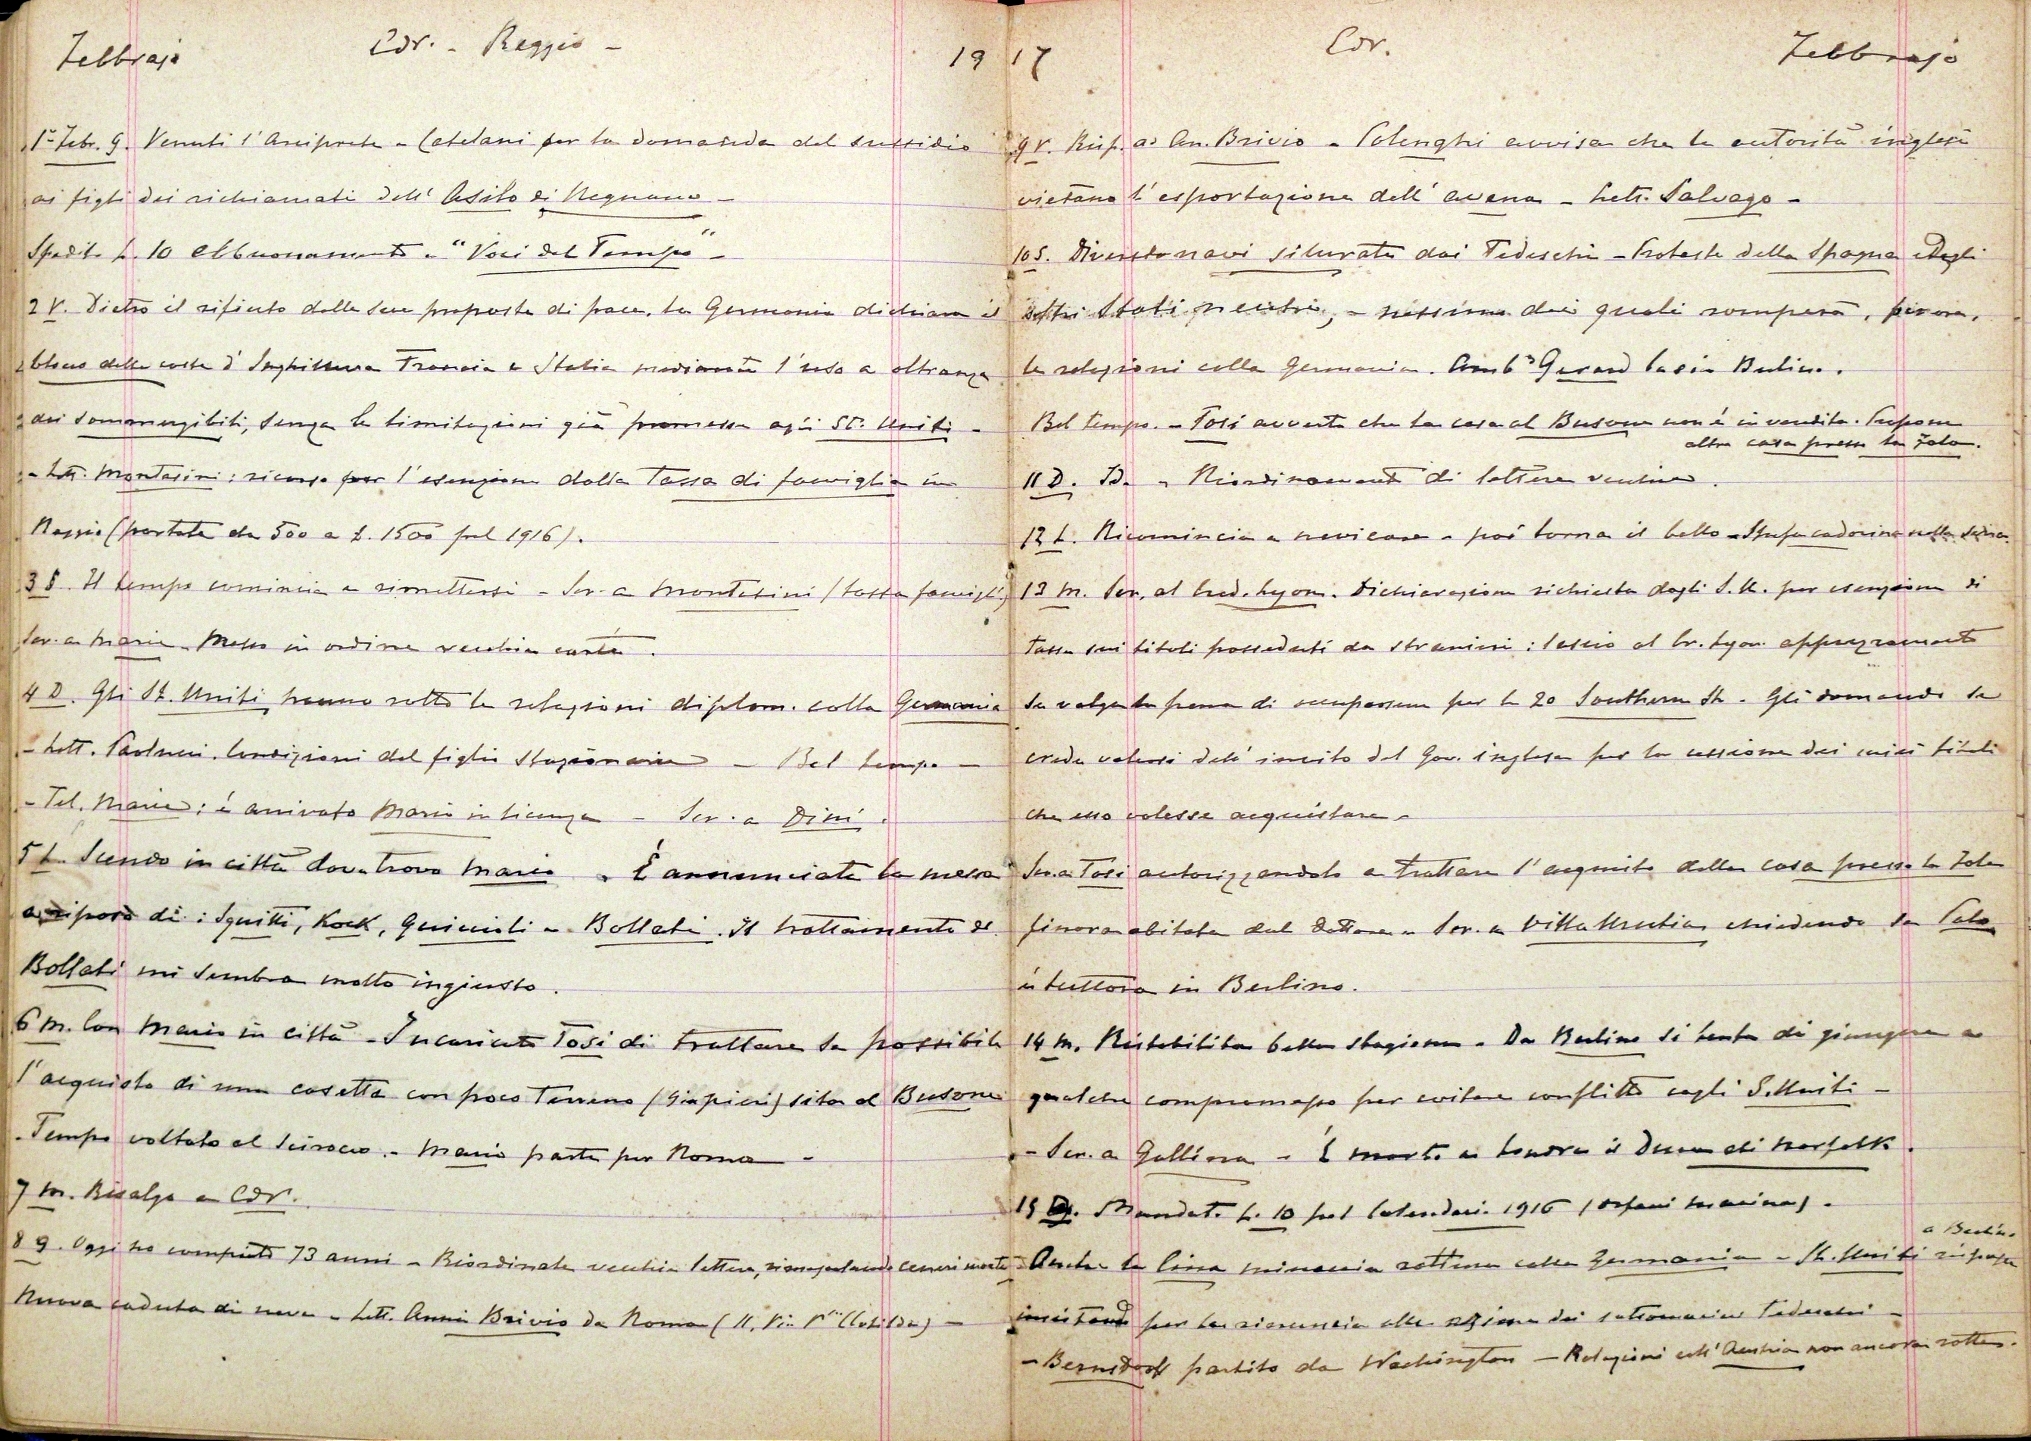 Febbrajo Cdr. - Reggio - 19
1° Febr. G. Venuti l'Arciprete e Catelani per la domanda del sussidio
ai figli dei richiamati dell'Asilo di Regnano -
Spedite L. 10 abbuonamento a "Voci del Tempo" -
2 V. Dietro il rifiuto delle sue proposte di pace, la Germania dichiara il
blocco delle coste d'Inghilterra Francia e Italia mediante l'uso a oltranza
dei sommergibili, senza le limitazioni già promesse agli St. Uniti -
- Lett. Montesini: ricorso per l'esenzione dalla Tassa di famiglia in
Reggio (portata da 500 a L. 1500 pel 1916).
3 S. Il tempo comincia a rimettersi - Scr. a Montesini (tassa famiglia)
Scr. a Maria. Messo in ordine vecchie carte.
4 D. Gli St. Uniti hanno rotto le relazioni diplom. colla Germania
- Lett. Paolucci. Condizioni del figlio stazionarie - Bel tempo -
- Tel. Maria: è arrivato Mario in licenza - Scr. a Dini.
5 L. Scendo in città dove trovo Mario - È annunciata la messa
a riposo di: Squitti, Kock, Guiccioli e Bollati. Il trattamento di
Bollati mi sembra molto ingiusto.
6 M. Con Mario in città - Incaricato Tosi di trattare se possibile
l'acquisto di una casetta con poco Terreno (Giapieri) sita al Busone
- Tempo voltato al Scirocco. - Mario parte per Roma -
7 M. Risalgo a Cdr.
8 G. Oggi ho compiuto 73 anni - Riordinate vecchie lettere,
Nuova caduta di neve - Lett. Anna Brivio da Roma (11, Via Pssa Clotilde) -
17 Cdr. Febbrajo
9 V. Risp. ad An. Brivio - Polenghi avvisa che le autorità inglesi
vietano l'esportazione dell'avena - Lett. Salvago -
10 S. Diverse navi silurate dai Tedeschi - Proteste della Spagna e degli
altri Stati neutri, - nessuno dei quali romperà, pei ora,
le relazioni colla Germania. Amb.e Gerard lascia Berlino.
Bel tempo. - Tosi avverte che la casa al Busone non è in vendita. Propone
altra casa presso la Fola.
11 D. Id. - Riordinamento di lettere vecchie.
12 L. Ricomincia a nevicare - poi torna il bello - Stufa cadorina nella
13 M. Scr. al Cred. Lyon. Dichiarazione richiesta dagli S. U. per esenzione di
tassa sui titoli posseduti da stranieri: lascio al Cr. Lyon. apprezzamento
se valga la pena di occuparsene per le 20 Southern St. - Gli domando se
crede valersi dell'invito del Gov. inglese per la cessione dei miei titoli
che esso volesse acquistare -
Scr. a Tosi autorizzandolo a trattare l'acquisto della casa presso la Fola
finora abitata dal dottore - Scr. a Villa Urrutia chiedendo se Polo
è tuttora in Berlino.
14 M. Ristabilita bella stagione - Da Berlino si tenta di giungere a
qualche compromesso per evitare conflitto cogli S. Uniti -
- Scr. a Gallina - È morto a Londra il Duca di Norfolk.
15 G. Mandate L. 10 pel Calendari 1916 (orfani marina).
Anche la Cina minaccia rottura colla Germania - St. Uniti a Berlino
insistendo per la rinuncia alla azione dei sottomarini Tedeschi -
- Bernstorff partito da Washington - Relazioni coll'Austria non ancora rotte.